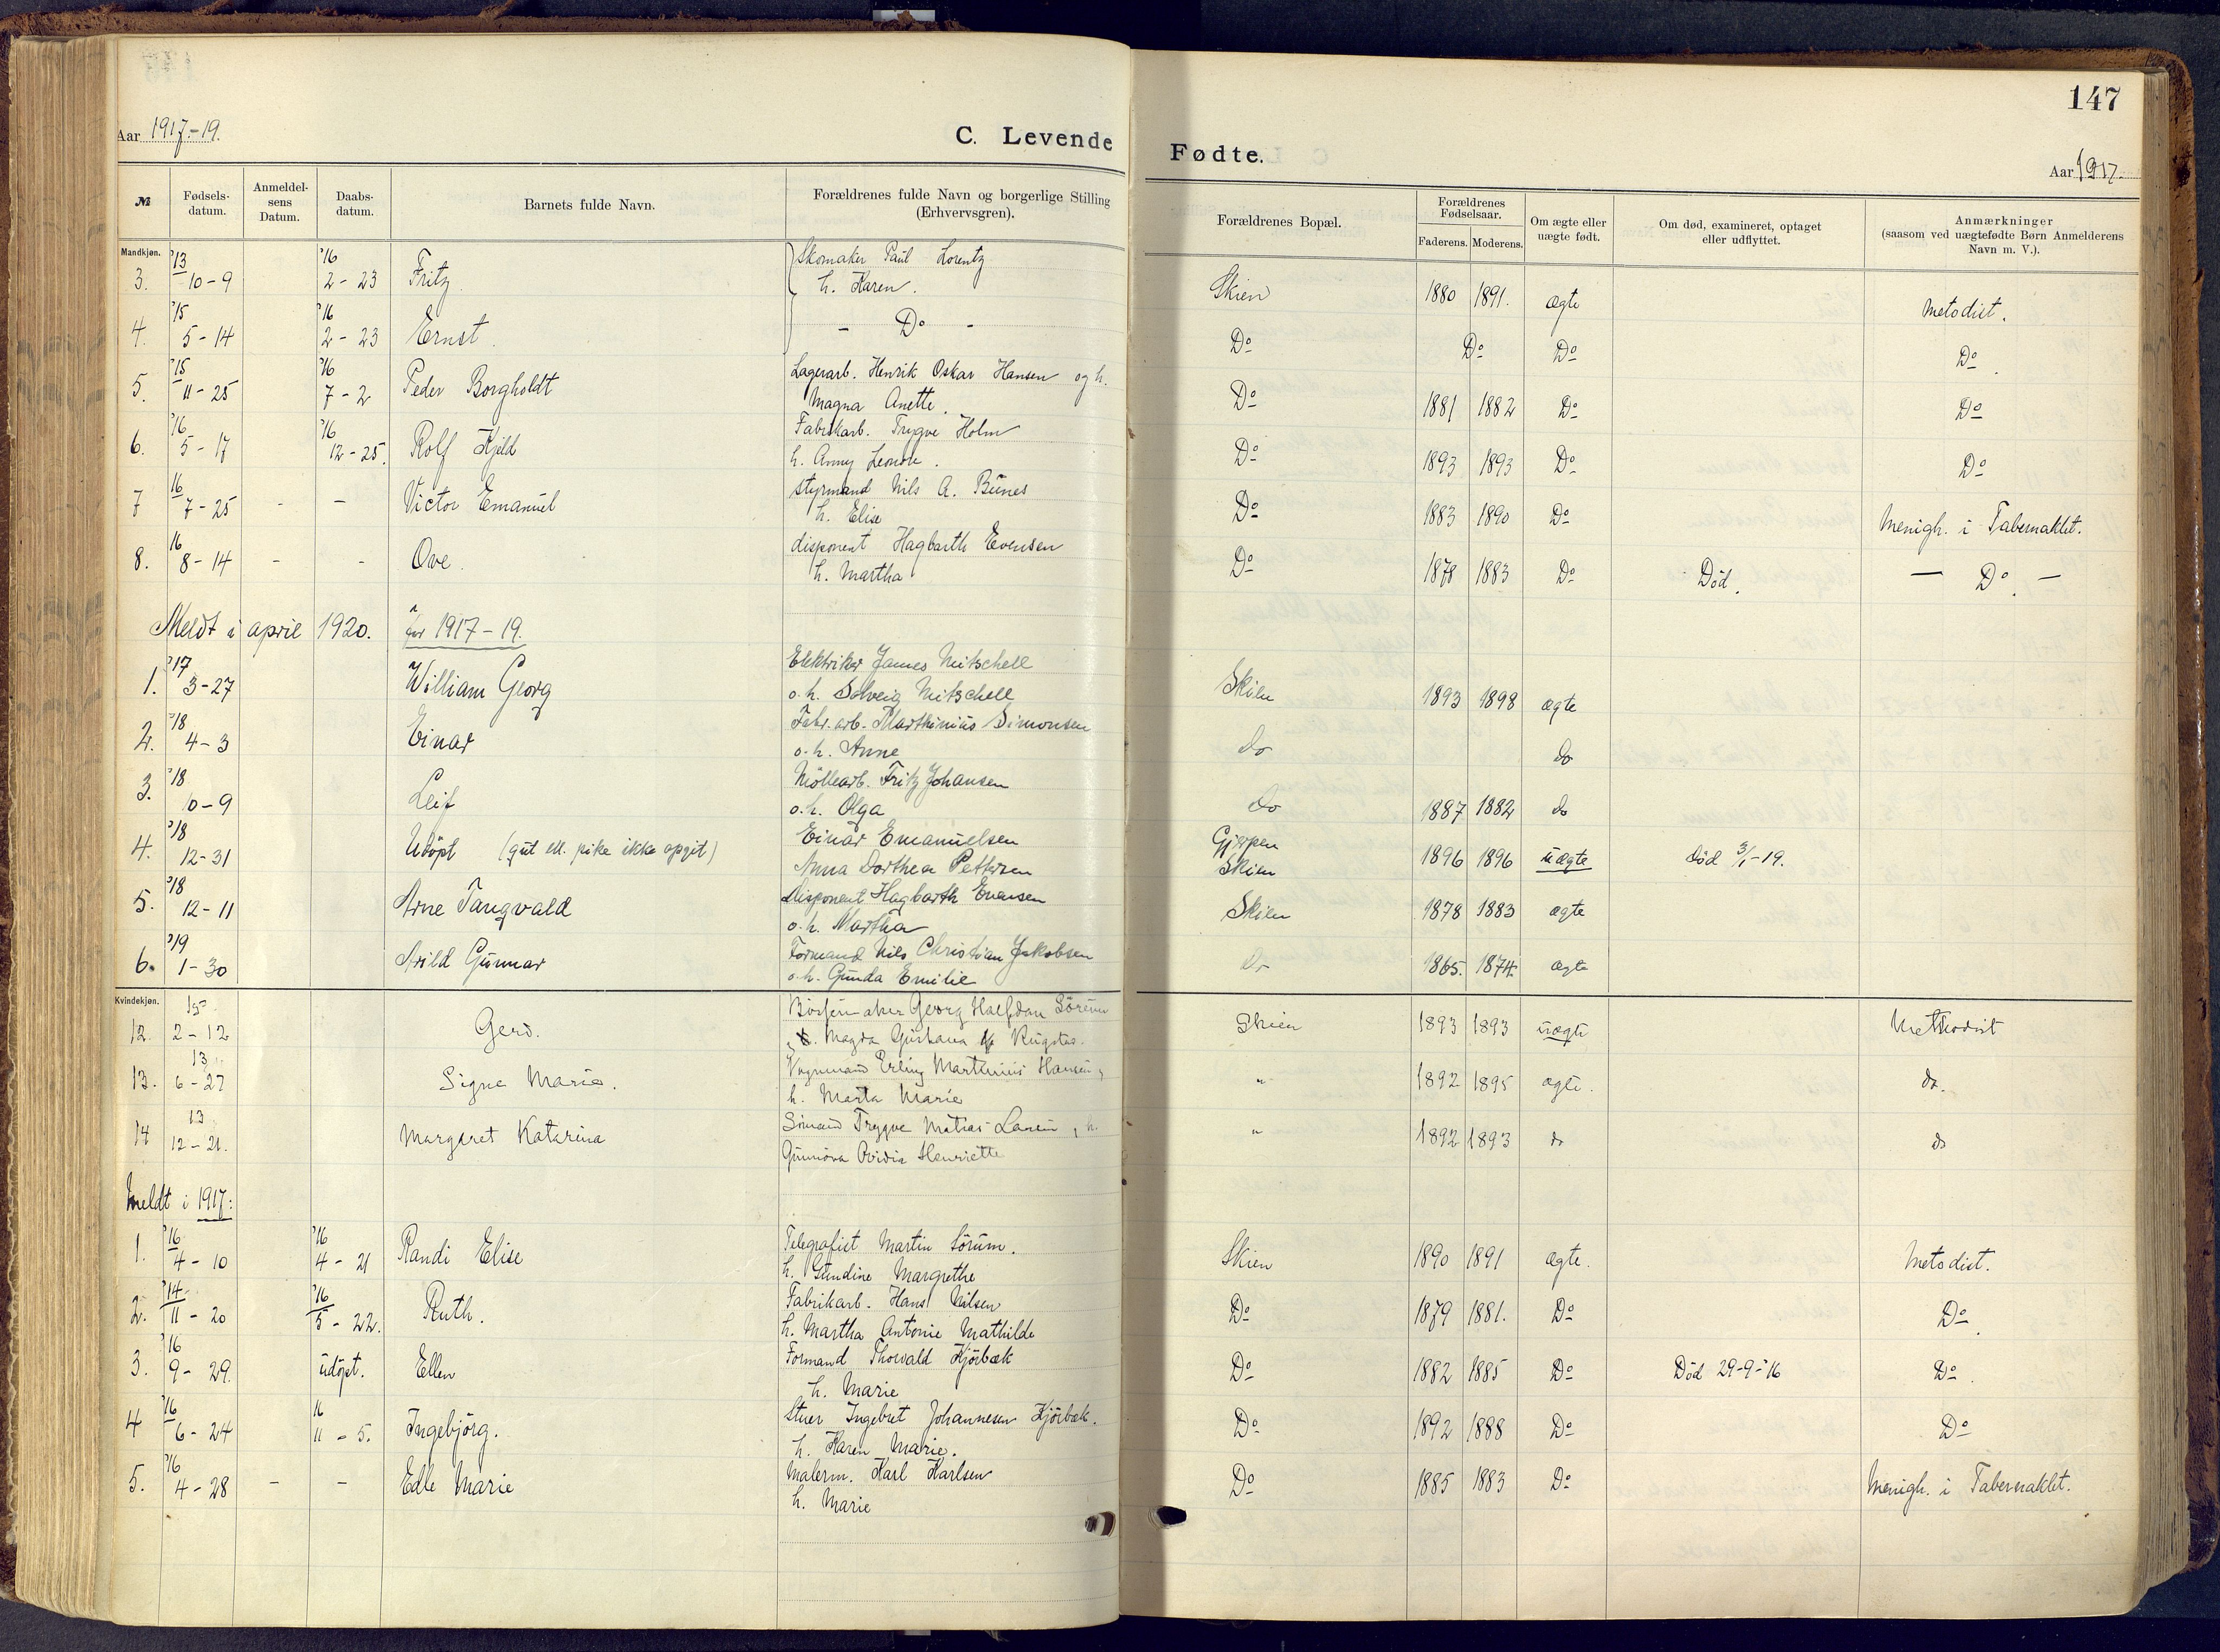 147
Aar 1917-19.
C. Levende
Fødte.
Aar 1917.
№
Fødsels-
datum.
Anmeldel-
sens
Datum.
Daabs-
datum.
Barnets fulde Navn.
Forældrenes fulde Navn og borgerlige Stilling
(Erhvervsgren).
Forældrenes Bopæl.
Forældrenes
Fødselsaar.
Faderens. Moderens.
Om ægte eller
uægte født.
Om død, examineret, optaget
eller udflyttet.
Anmærkninger
(saasom ved uægtefødte Børn Anmelderens
Navn m. V.).
Mandkjøn.
'13 '16 Skomaker Paul Lorentz
3. 10-9 2-23 Fritz h. Karen. Skien 1880 1891. ægte Metodist.
'15 '16
4. 5-14 2-23 Ernst. - Do - Do Do Do Do.
'15 '16 Lagerarb. Henrik Oskar Hansen og h.
5. 11-25 7-2 Peder Borgholdt Magna Anette. Do 1881 1882 Do Do
'16 '16 Fabrikarb. Trygve Holm
6. 5-17 12-25. Rolf Kjeld h. Anny Leonore. Do 1893 1893 Do Do
16 styrmand Nils A. Bünes
7 7-25 - - Victor Emanuel h. Elise Do 1883 1890 Do Menigh. i Tabernaklet.
16 disponent Hagbarth Evensen
8. 8-14 - - Ove. h. Martha Do 1878 1883 Do Død. - Do. -
Meldt i april 1920. for 1917-19.
'17 Elektriker James Mitschell
1. 3-27 William Georg o.h. Solveig Mitschell Skien 1893 1898 ægte
'18 Fabr.arb. Marthinius Simonsen
2. 4-3 Einar o.h. Anne do do
'18 Møllearb. Fritz Johansen
3. 10-9 Leif o.h. Olga do 1887 1882 do
'18 Einar Emanuelsen Gjerpen
4. 12-31 Udöpt (gut ell. pike ikke opgit) Anna Dorthea Pettersen Skien 1896 1896 uægte død 3/1-19.
'18 Disponent Hagbarth Evensen
5. 12-11 Arne Tangvald o.h. Martha Skien 1878 1883 ægte
'19 Formand Nils Christian Jakobsen
6. 1-30 Arild Gunnar o.h. Gunda Emilie do 1865. 1874. ægte
Kvindekjøn.
15 Georg Halfdan Sörensen
12. 2-12 Gerd. Magda Skien 1893 1893 uægte Methodist
13 Vognmand Erling Marthinius Hansen,
13. 6-27 Signe Marie. h. Marta Marie " 1892 1895 ægte. do.
13 Sömand Trygve Matias Larsen, h.
14 12-21. Margaret Katarina Ovidia Henriette " 1892 1893 do do
Meldt i 1917:
'16 '16 Telegrafist Martin Sörum.
1. 4-10 4-21 Randi Elise h. Gundine Margrethe Skien 1890 1891 ægte. Metodist.
'14 '16 Fabrikarb. Hans Nilsen
2. 11-20 5-22. Ruth. h. Martha Antonie Mathilde Do 1879 1881. Do Do.
'16 Formand Thorvald Kjörbæk
3. 9-29. udöpt. Ellen h. Marie Do 1882 1885 Do Død 29-9-'16 Do.
'16 16 Stuer Ingebret Johannesen Kjörbæk.
4 6-24 11-5. Ingebjörg. h. Karen Marie. Do 1892 1888 Do Do
'16 Malerm. Karl Karlsen
5. 4-28 - - Edle Marie h. Marie Do 1885 1883 Do Menigh. i Tabernaklet.